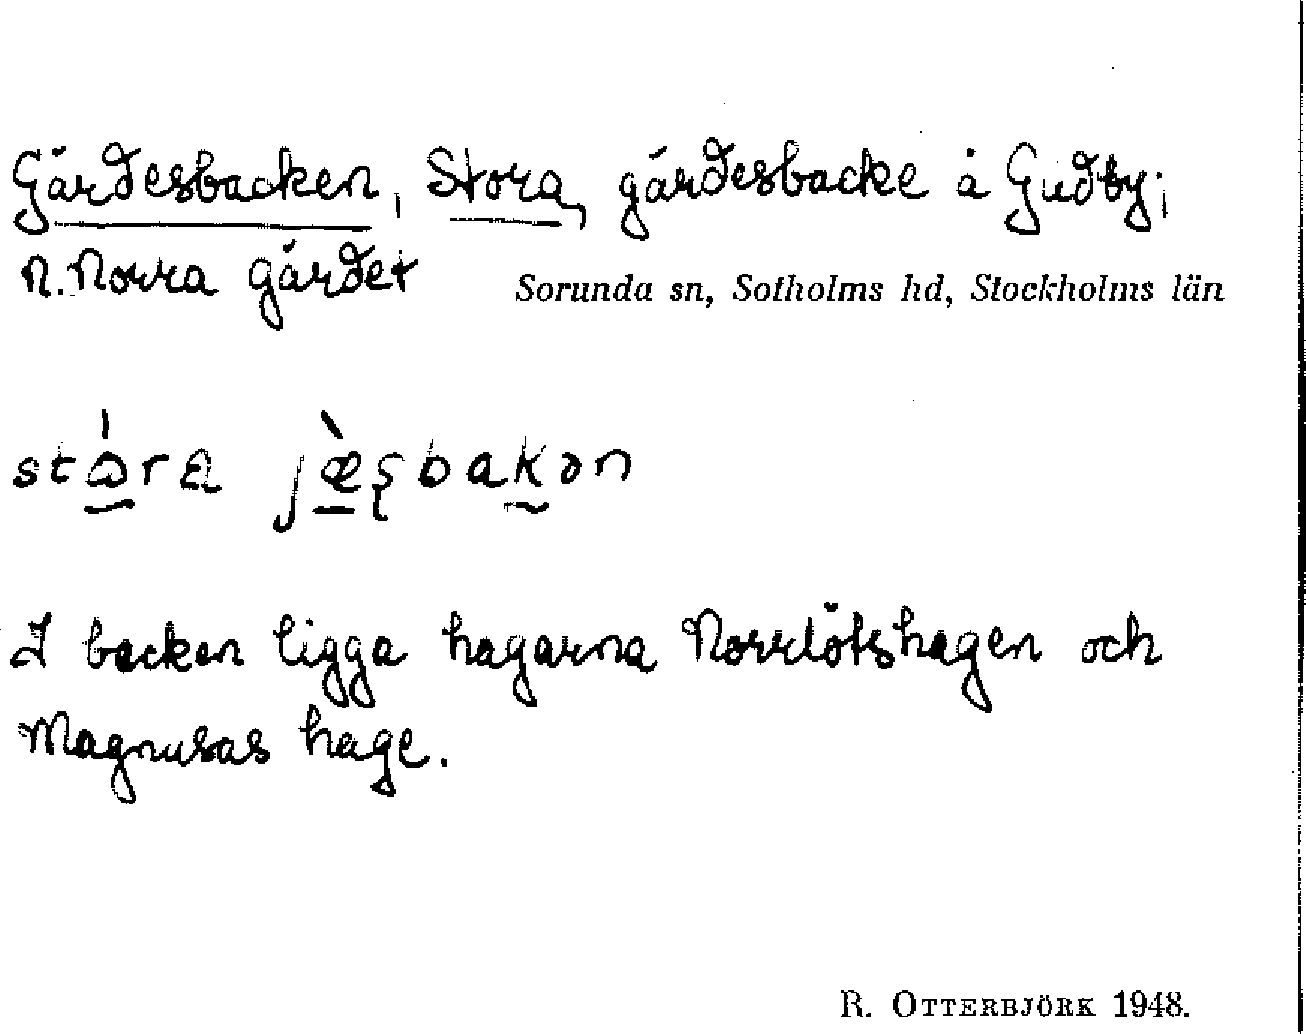 Gärdesbacken, Stora, gärdesbacke å Gudby;
n. Norra gärdet
Sorunda sn, Sotholms hd, Stockholms län
I backen ligga hagarna Norrlötshagen och
Magnusas hage.
R. OTTERBJÖRK 1948.